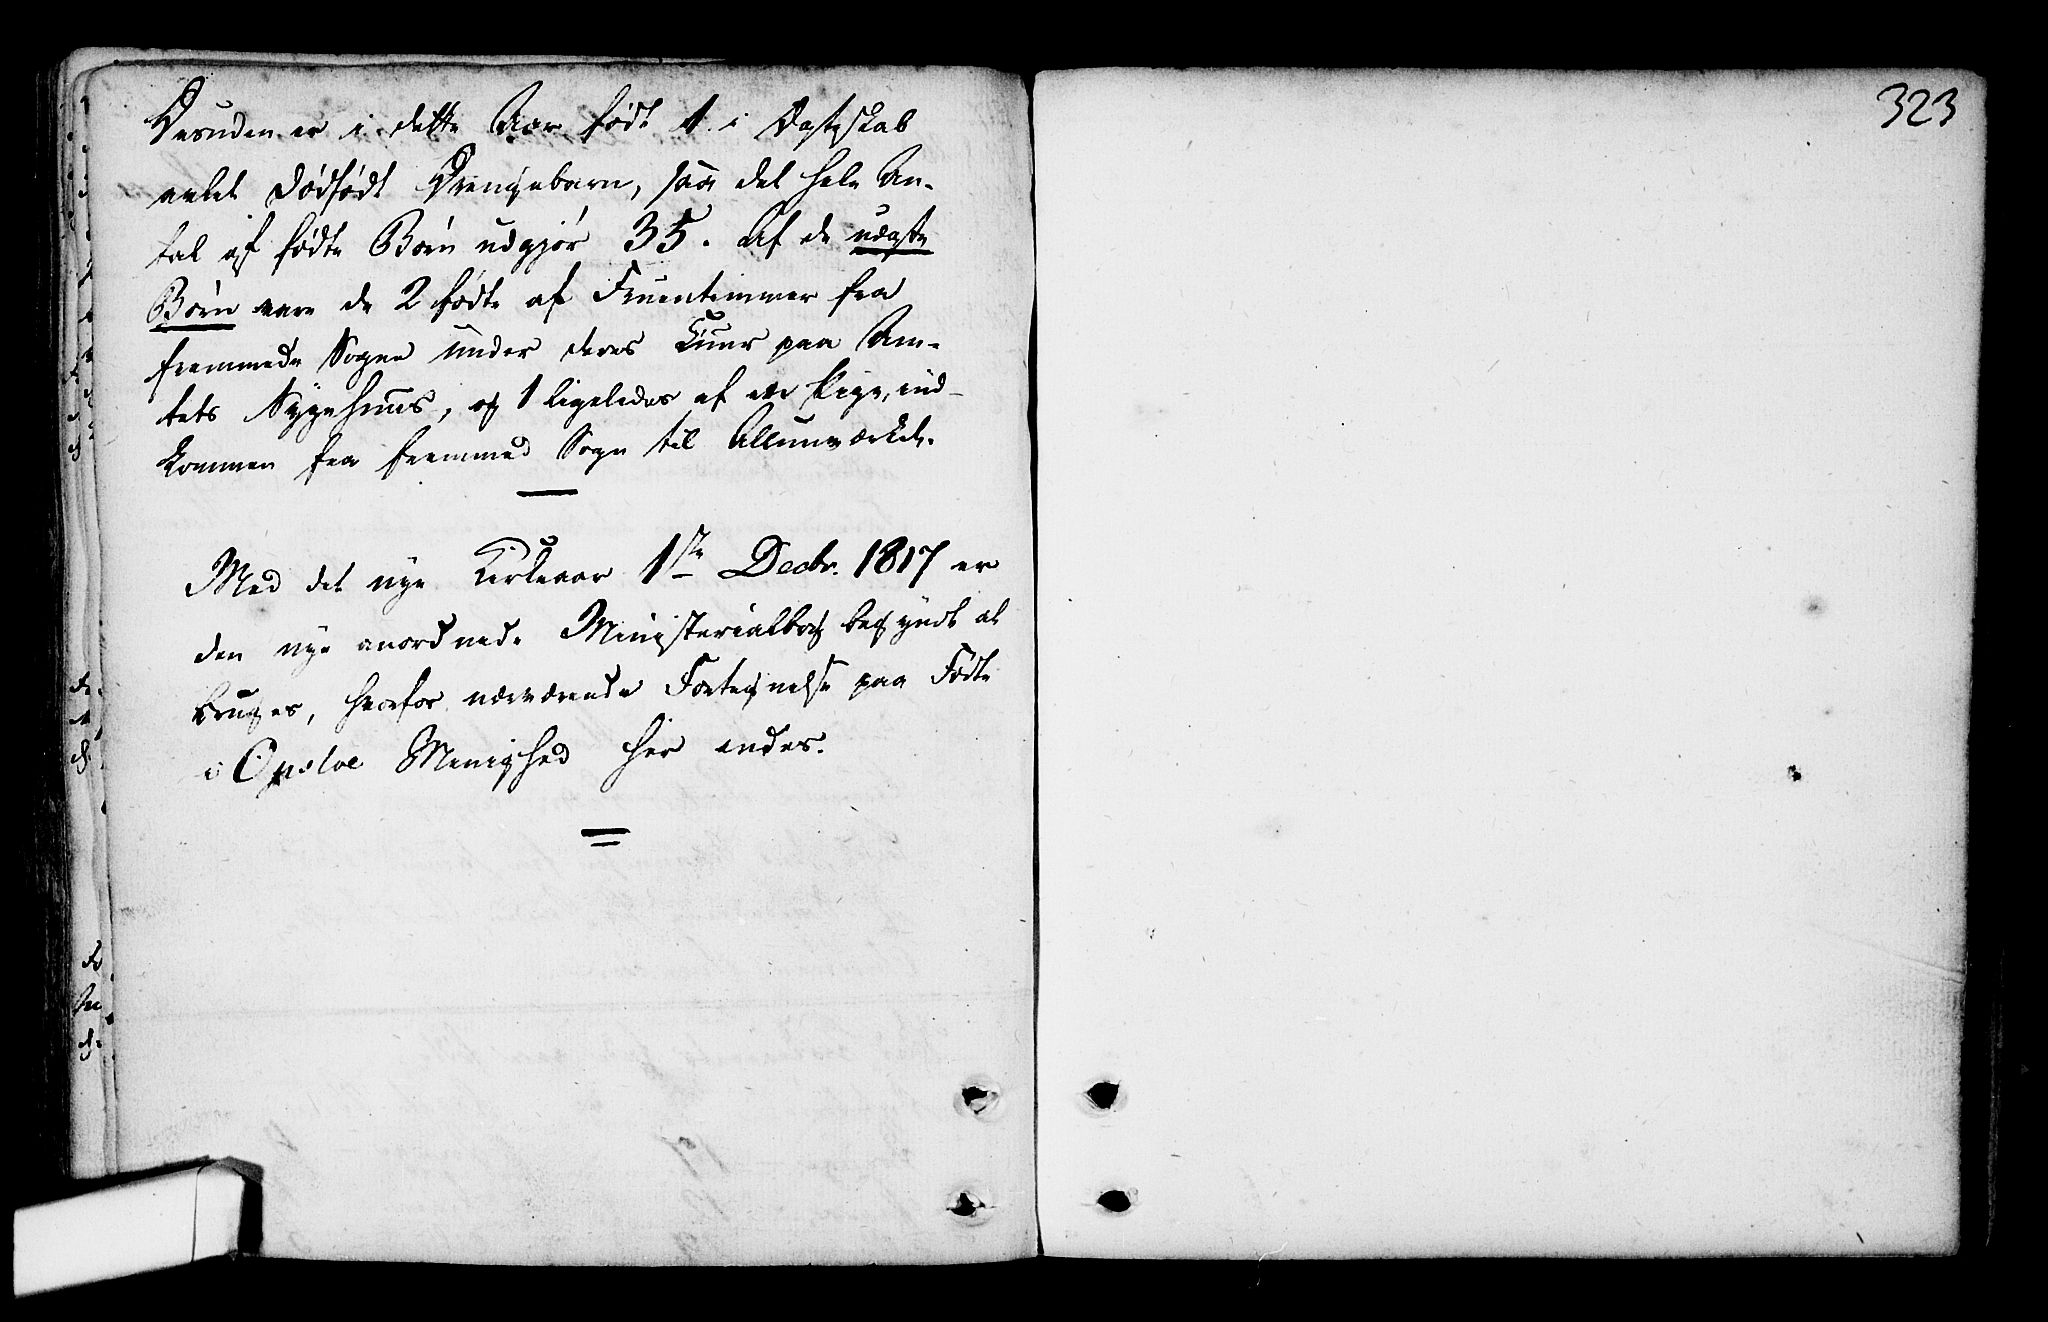 Desuden er i dette Aar født 1. i Ægteskab
avlet Dødfødt Drengebarn, saa det hele An-
tal af fødte Børn udgjør 35. Af de uægte
Børn vare de 2 fødte af Fruentimmer fra
fremmede Sogne under deres Cuur paa Am-
tets Sygehuus, og 1 ligeledes af en Pige, ind-
kommen fra fremmed Sogn til Allunværket.
Med det nye Kirkeaar 1ste Decbr. 1817 er
den nye anordnede Ministerialbog begyndt at
bruges, hvorfor nærværende Fortegnelse paa Fødte
i Opsloe Menighed her endes.
323